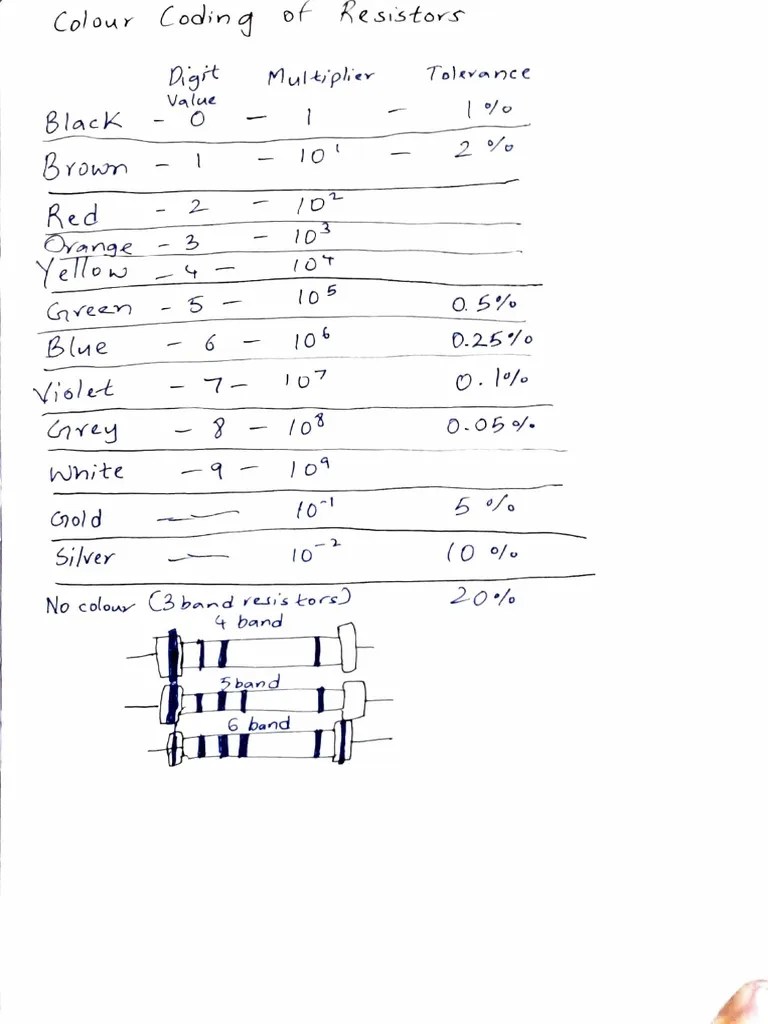 Colour Coding of Resistors
Digit Value Multiplier Tolerance
Black - 0 - 1 - 1%
Brown - 1 - 10¹ - 2%
Red - 2 - 10²
Orange - 3 - 10³
Yellow - 4 - 10⁴
Green - 5 - 10⁵ 0.5%
Blue - 6 - 10⁶ 0.25%
Violet - 7 - 10⁷ 0.1%
Grey - 8 - 10⁸ 0.05%
White - 9 - 10⁹
Gold — 10⁻¹ 5%
Silver — 10⁻² 10%
No colour (3 band resistors) 20%
4 band
5 band
6 band